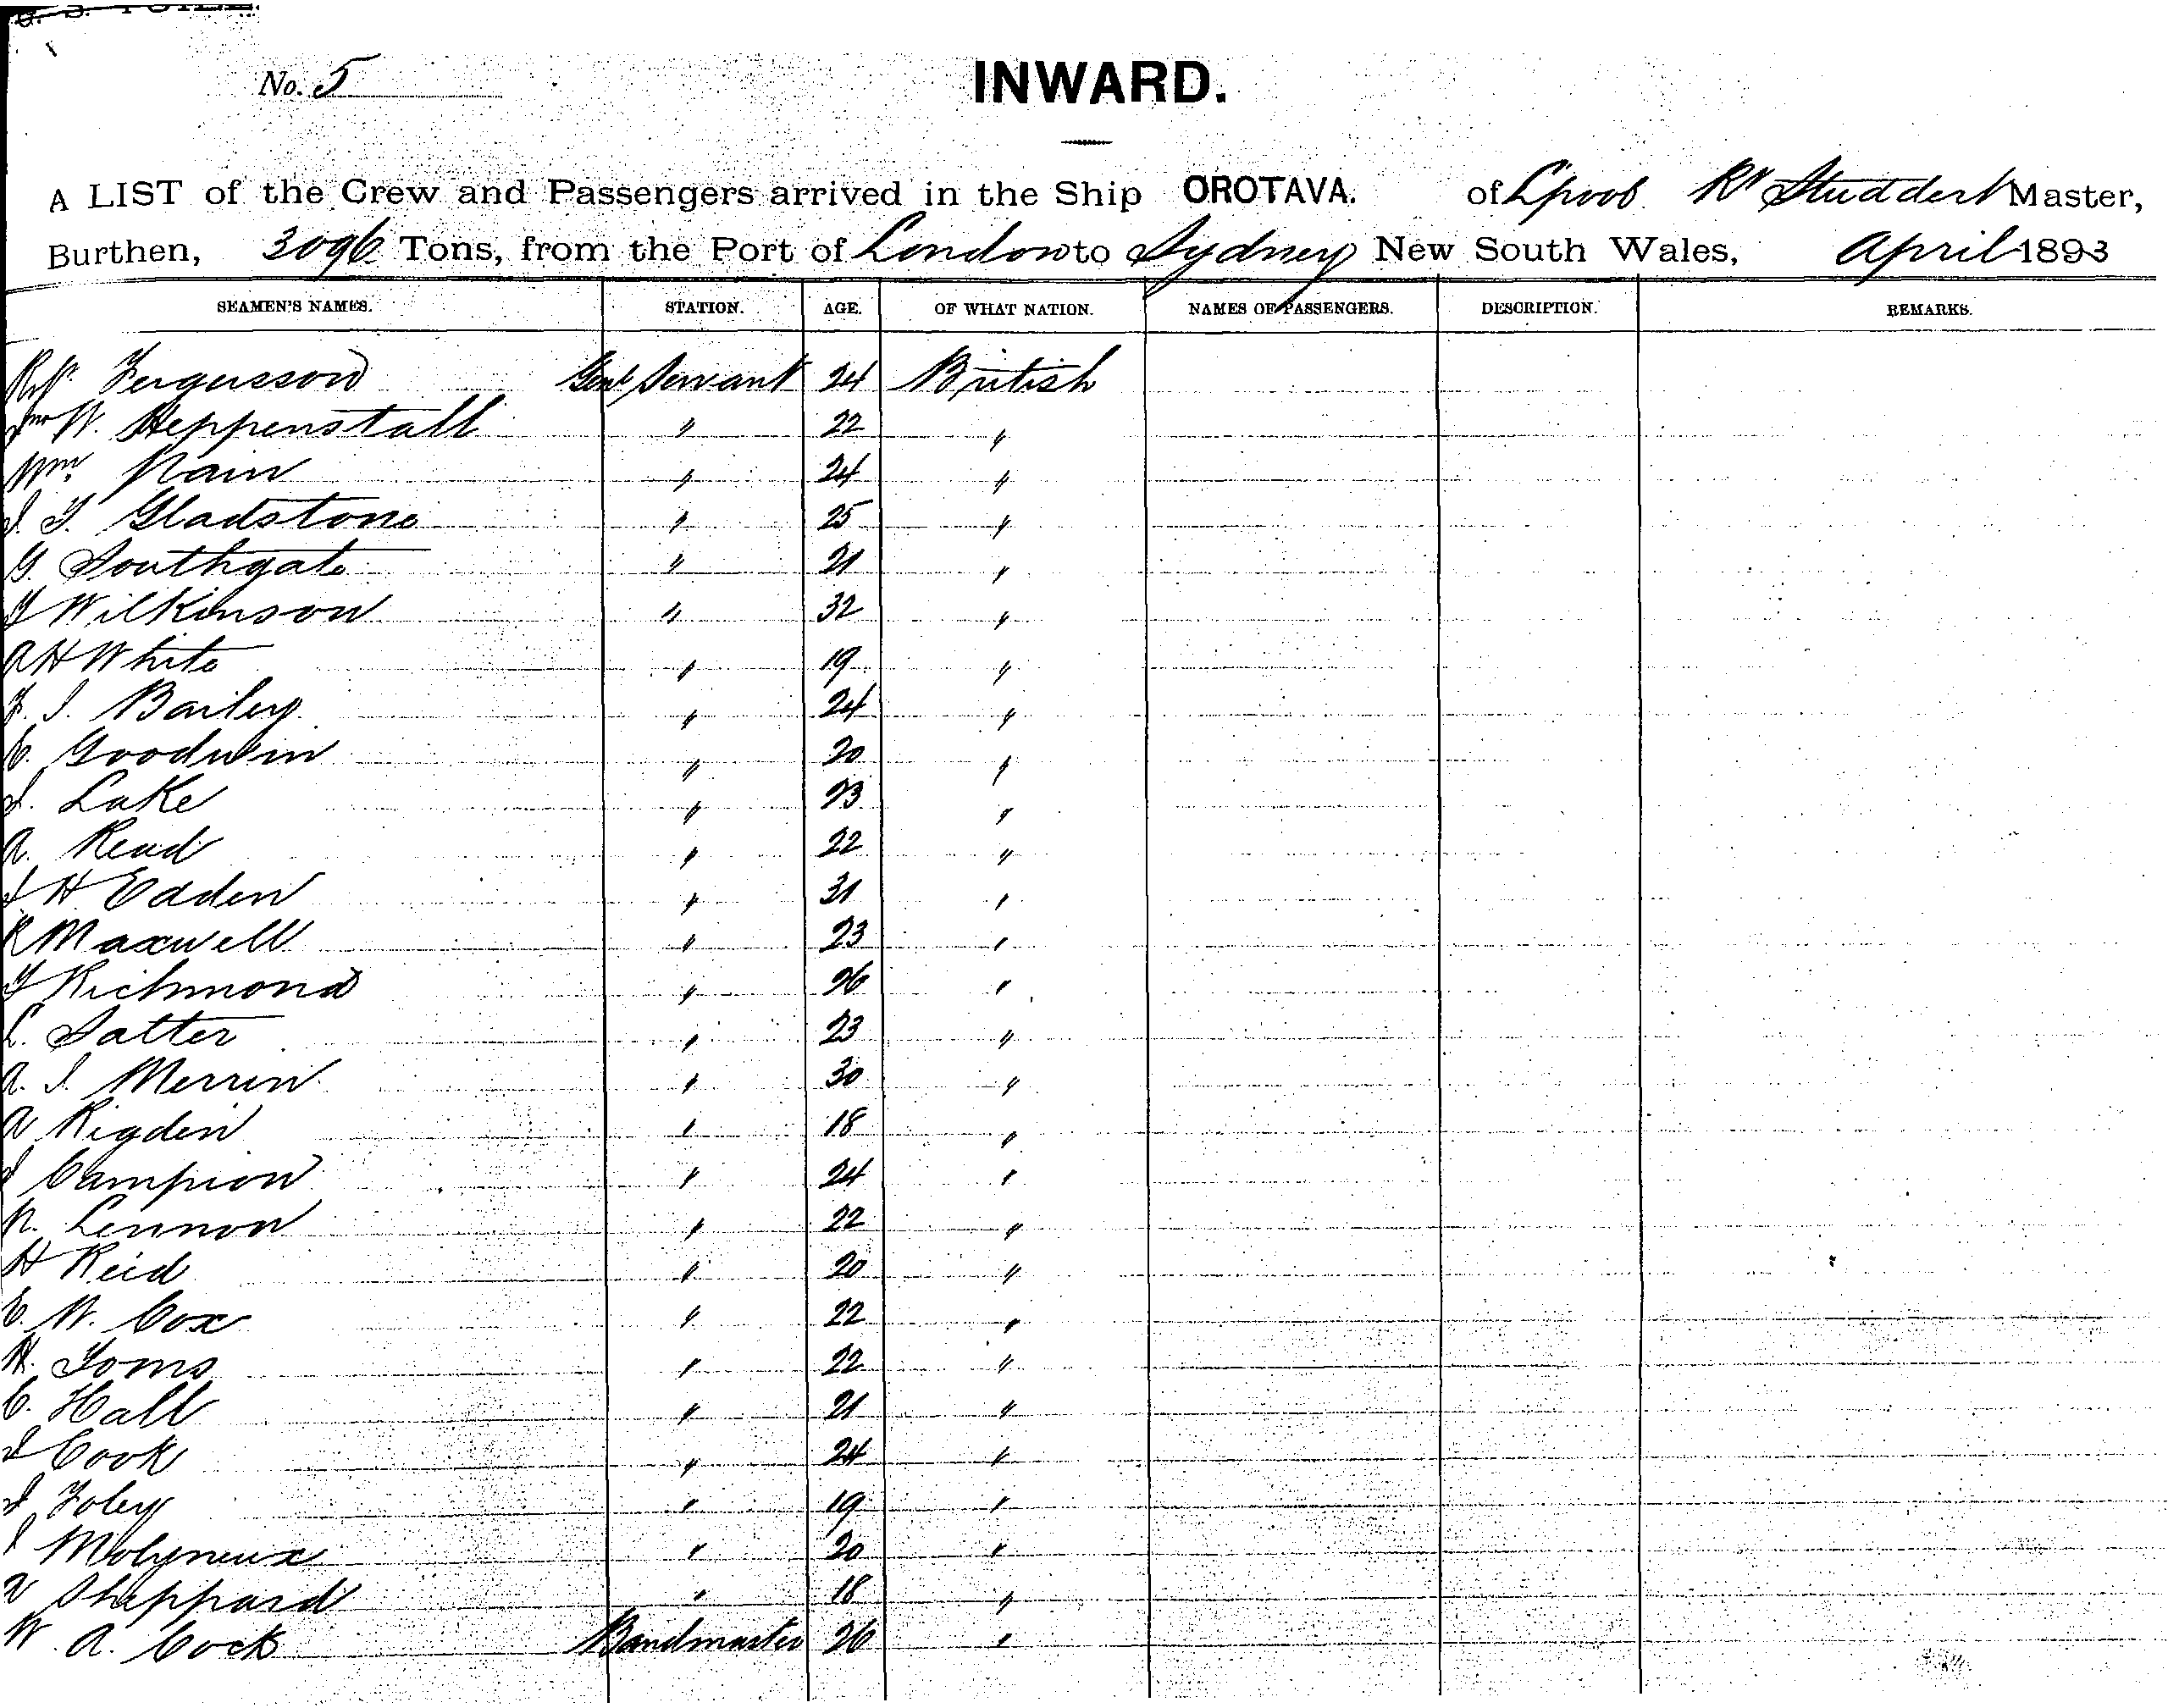 No. 5
INWARD.
A LIST of the Crew and Passengers arrived in the Ship OROTAVA. of Lpool Rt Studdert Master,
Burthen, 3096 Tons, from the Port of London to Sydney New South Wales, April 1893
SEAMEN'S NAMES. STATION. AGE. OF WHAT NATION. NAMES OF PASSENGERS. DESCRIPTION. REMARKS.
Fergusson Genl Servant 24 British
W. Heppenstall " 22 "
Wm. Nain " 24 "
J. T. Gladstone " 25 "
G. Southgate " 21 "
T Wilkinson " 32 "
A H White " 19 "
F. J. Bailey " 24 "
C. Goodwin " 20 "
J. Lake " 23 "
A. Read " 22 "
J H Edden " 31 "
R Maxwell " 23 "
T Richmond " 26 "
L. Satter " 23 "
A. J. Merrin " 30 "
A Rigden " 18 "
J Campion " 24 "
N. Lennon " 22 "
H Reid " 20 "
E. W. Cox " 22 "
H. Toms " 22 "
C. Hall " 21 "
J Cook " 24 "
J Foley " 19 "
J Molyneux " 20 "
Sheppard " 18 "
W. A. Cock Bandmaster 26 "